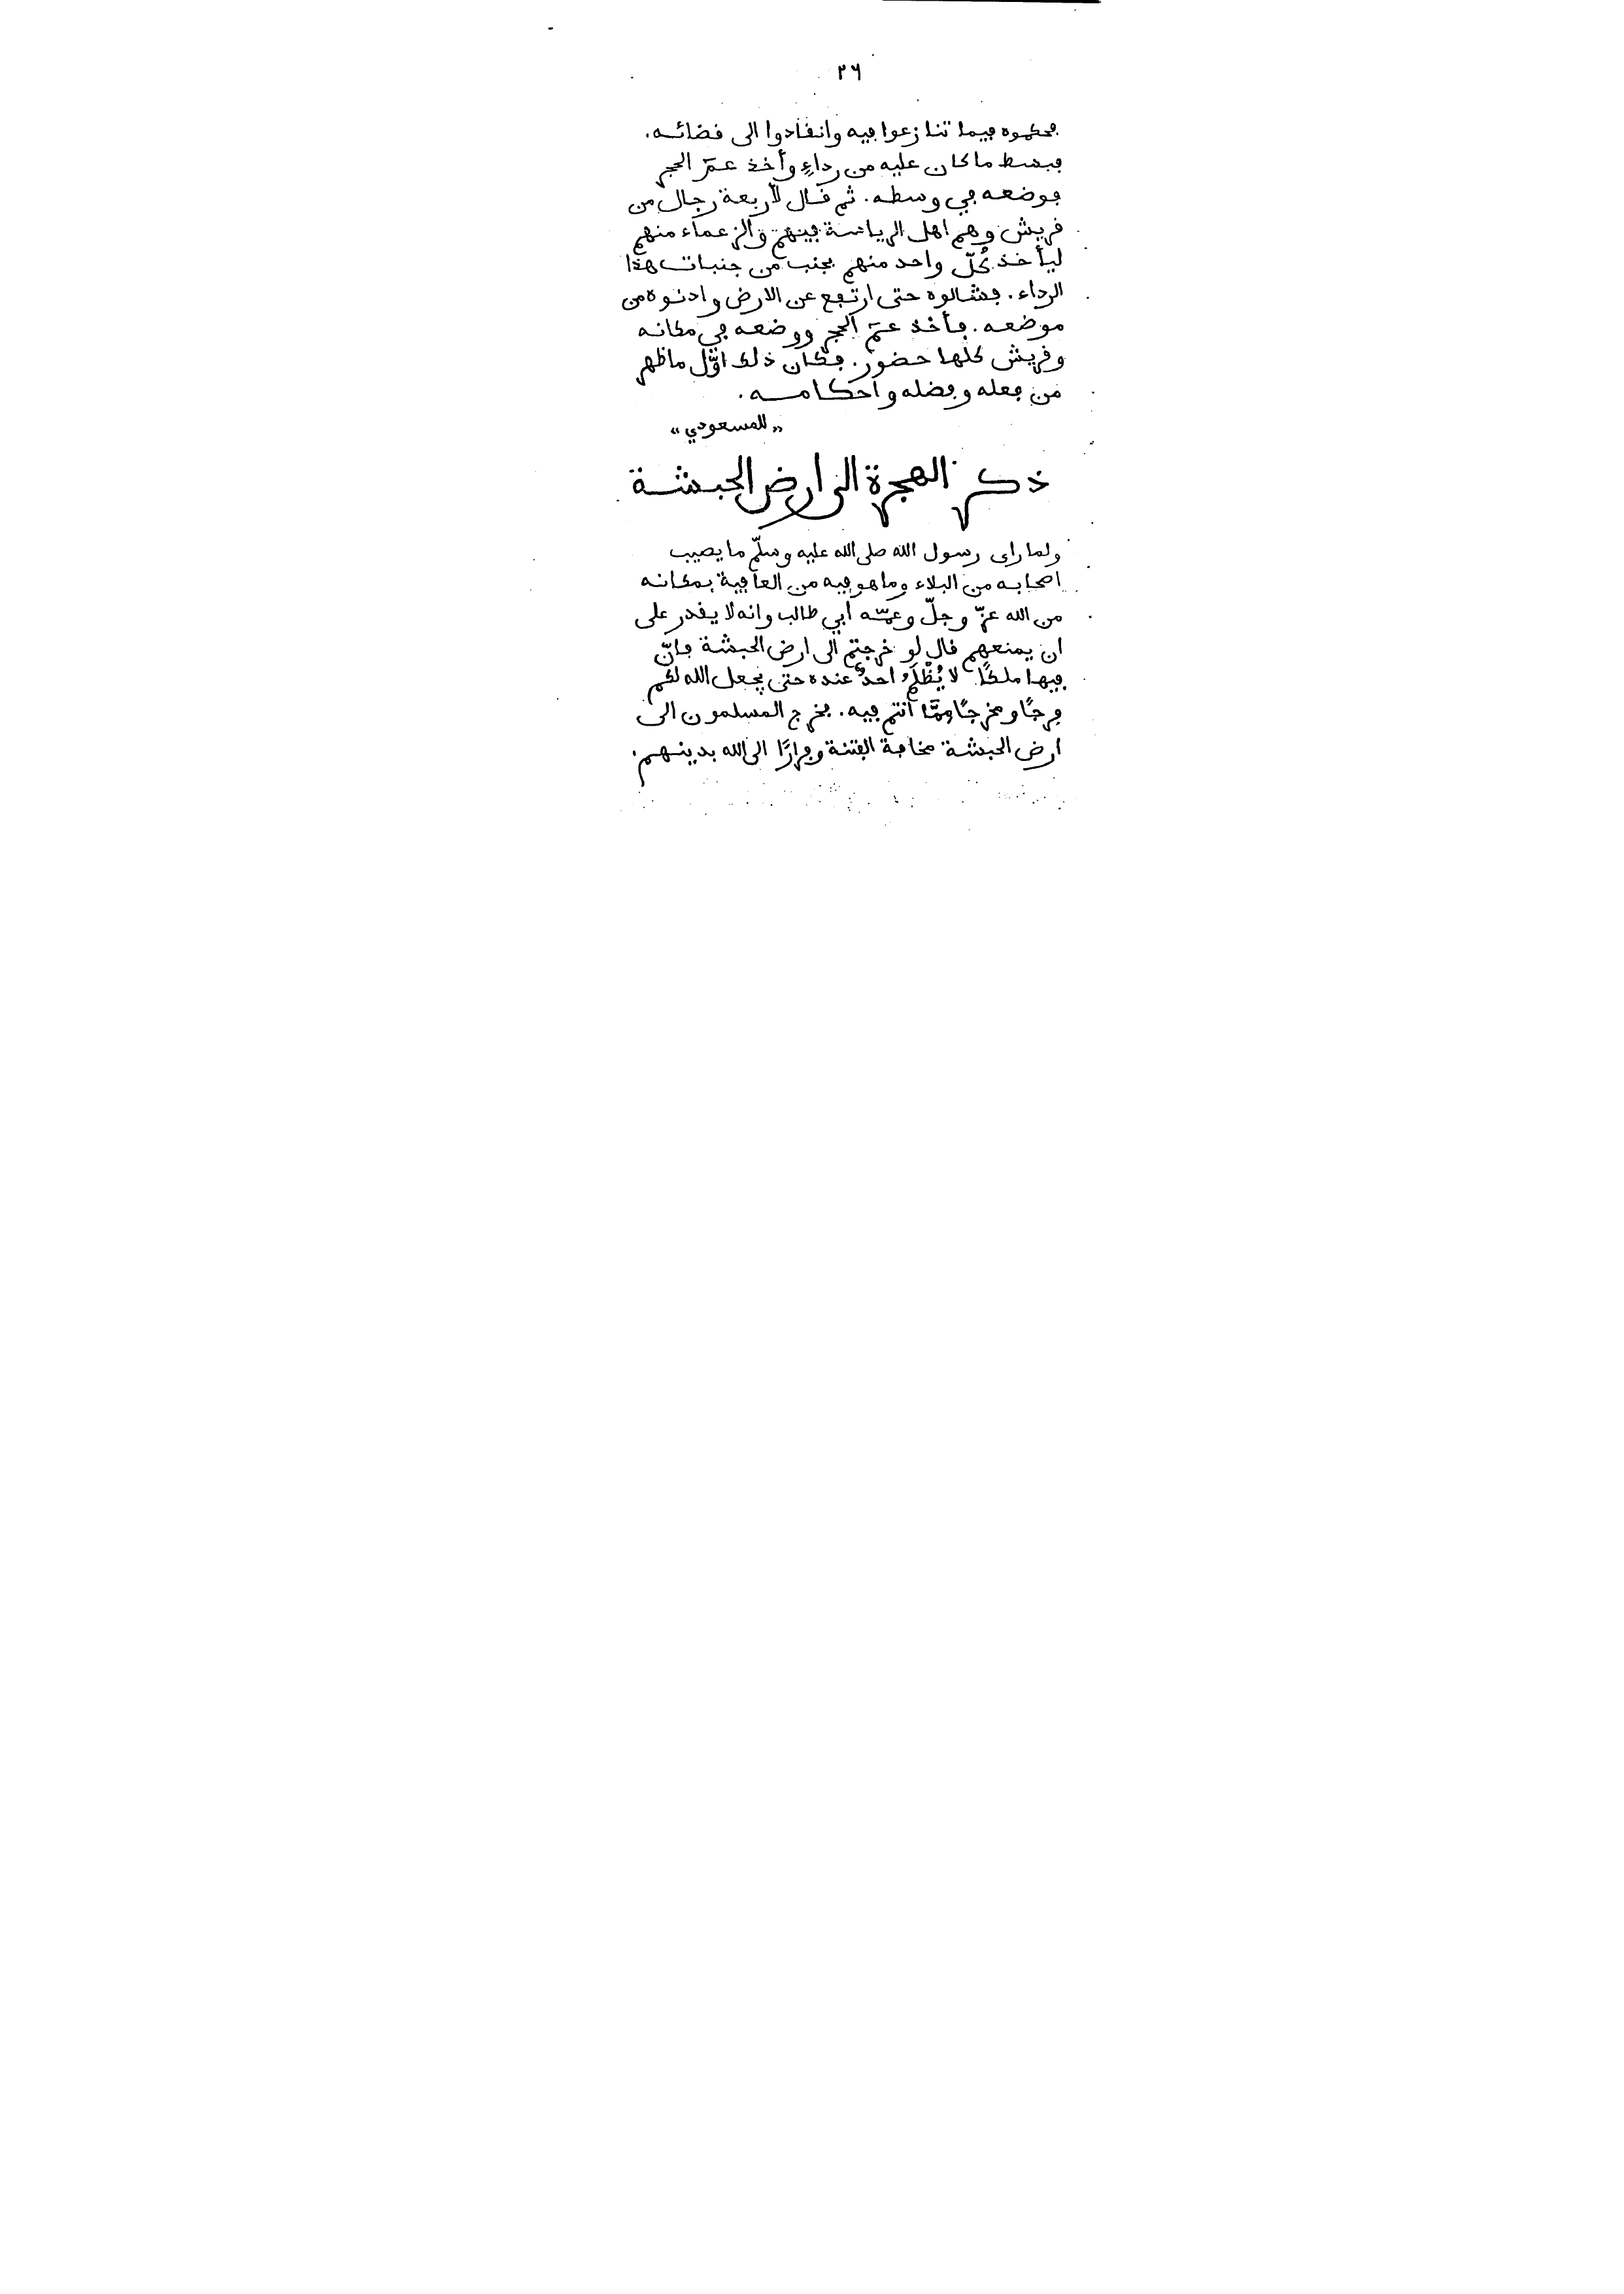 ٢٦
فحكموه فيما تنازعوا فيه وانقادوا الى قضائه.
فبسط ما كان عليه من رداءٍ وأخذ عمّ الحجر
فوضعه في وسطه. ثم قال لأربعة رجال من
قريش وهم اهل الرياسة فيهم والزعماء منهم
ليأخذ كُلّ واحد منهم بجنب من جنبات هذا
الرداء. فشالوه حتى ارتفع عن الارض وادنوه من
موضعه. فأخذ عمّ الحجر ووضعه في مكانه
وقريش كلها حضور. فكان ذلك اوّل ما ظهر
من فعله وفضله واحكامه.
„للمسعودي“
ذكر الهجرة الى ارض الحبشة
ولما راى رسول الله صلى الله عليه وسلّم ما يصيب
اصحابه من البلاء وما هو فيه من العافية بمكانه
من الله عزّ وجلّ وعمّه أبي طالب وانه لا يقدر على
ان يمنعهم قال لو خرجتم الى ارض الحبشة فانّ
فيها ملكًا لا يُظْلَمُ احدٌ عنده حتى يجعل الله لكم
فرجًا ومخرجًا ممّا أنتم فيه. فخرج المسلمون الى
ارض الحبشة مخافة الفتنة وفرارًا الى الله بدينهم.